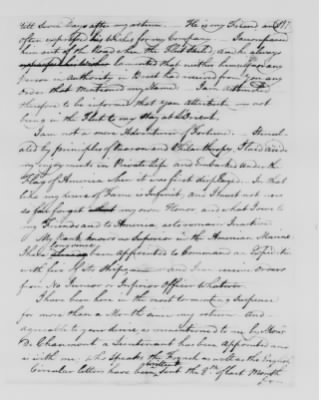 till Seven Days after my return. — He is my Friend and
often expressed his wishes for my Company — I accompanied
him out of the Road when the Fleet Sail'd, and he always
lamented that neither himself nor any
Person in Authority in Brest had received from you any
Order that Mentioned my Name. I am
therefore to be informed that you attribute — not
being in the Fleet to my Stay at L'Orient.
I am not a mere Adventurer of Fortune. — Stimulated
by principles of Reason and Philanthropy, I laid aside
my enjoyments in Private Life and Embarked under the
Flag of America when it was first displayed. In that
line my desire of Fame is Infinite, and I must not now
so far forget my own Honor and what I owe to
my Friends and to America, as to remain Inactive.
My Rank knows no Superior in the American Marine
I have been appointed to Command an Expedition
with five of its Ships — and I can receive Orders
from No Junior or Inferior Officer whatever.
I have been here in the most tormenting Suspence
for more than a Month since my return — And
agreeable to your desire, as mentioned to me by Monr.
D. Chaumont a Lieutenant has been Appointed and
is with me who speaks the French as well as the English
Circular letters have been sent the 8th of last Month